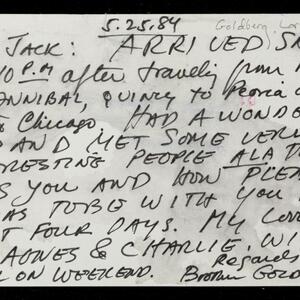 5.25.84
Goldberg, La
JACK: ARRIVED SA
10 P.M after traveling from
ANNIBAL, QUINCY to Peoria
Chicago. HAD A WONDE
AND MET SOME VER
ERESTING PEOPLE A LA
S YOU AND HOW PLEA
AS TO BE WITH YOU
T FOUR DAYS. MY LOV
AGNES & CHARLIE. WI
L ON WEEKEND. Regards
Brother GOLD